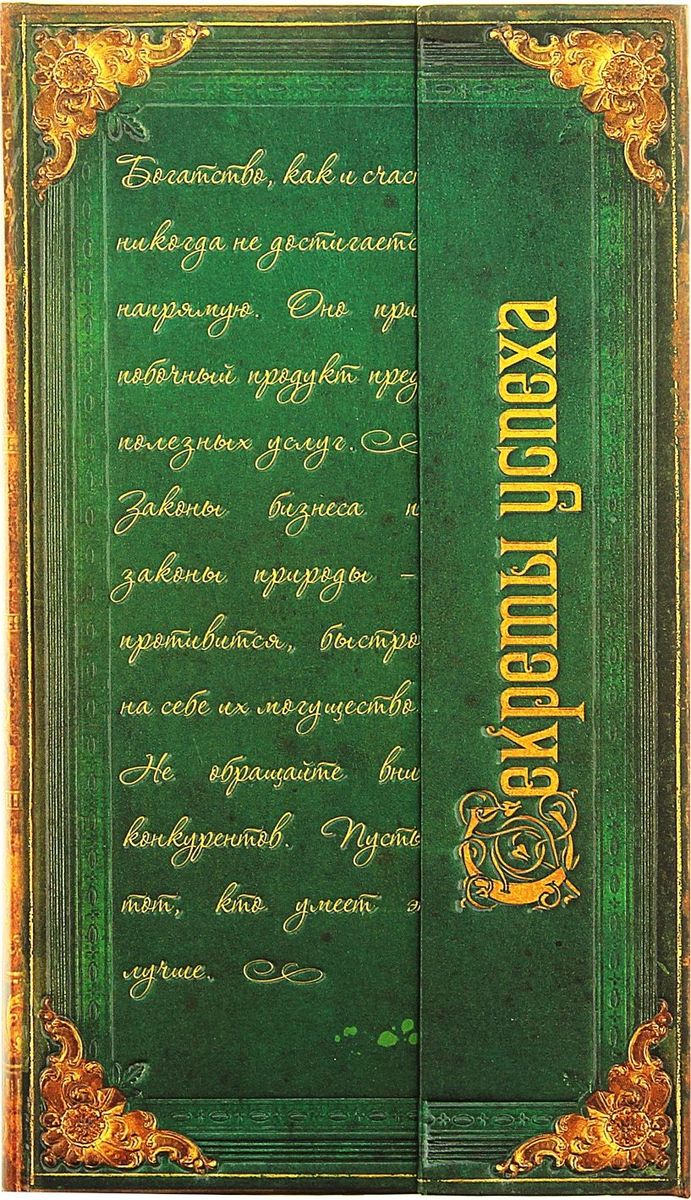 Богатство, как и счас
никогда не достигаетс
напрямую. Оно при
побочный продукт пред
полезных услуг.
Законы бизнеса п
законы природы –
противится, быстро
на себе их могущество
Не обращайте вни
конкурентов. Пусть
тот, кто умеет э
лучше.
Секреты успеха